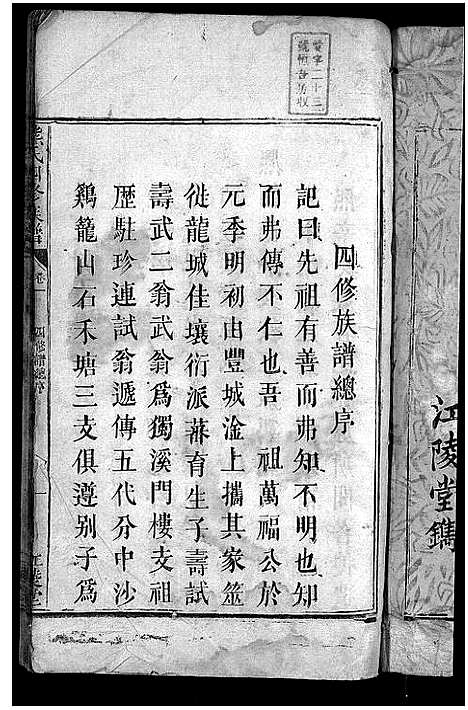 江陵堂鐫
四修族譜總序
記曰先祖有善而弗知不明也知
而弗傳不仁也吾 祖萬福公於
元季明初由豐城淦上攜其家筮
徙龍城佳壤衍派蕃育生子壽試
壽武二翁武翁爲獨溪門樓支祖
歷駐珍連試翁遞傳五代分中沙
鷄籠山石禾塘三支俱遵别子爲
四修譜總序